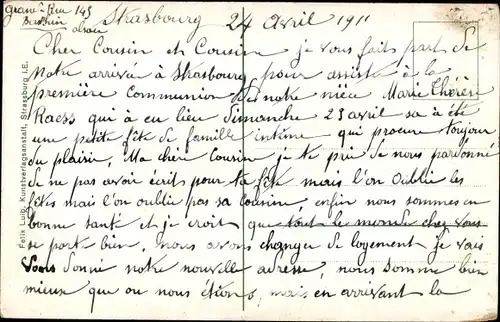 Grand Rue 145
Strasbourg 24 Avril 1911
Cher Cousin et Cousine je vous fait part de
Notre arrivée à Strasbourg pour assisté à la
première Communion de notre nièce Marie Thérèse
Raess qui à eu lieu Dimanche 23 avril sa à été
une petite fête de famille intime qui procure toujour
du plaisir, Ma chère Cousine je te prie de nous pardonné
de ne pas avoir écrit pour ta fête mais l'on oublie les
fêtes mais l'on oublie pas sa cousine, enfin nous sommes en
bonne santé et je croit que tout le monde chez vous
se porte bien, nous avons changer de logement je vais
vous donné notre nouvelle adresse, nous somme bien
mieux que ou nous étions, mais en arrivant la
Felix Luib, Kunstverlagsanstalt, Strassburg i.E.